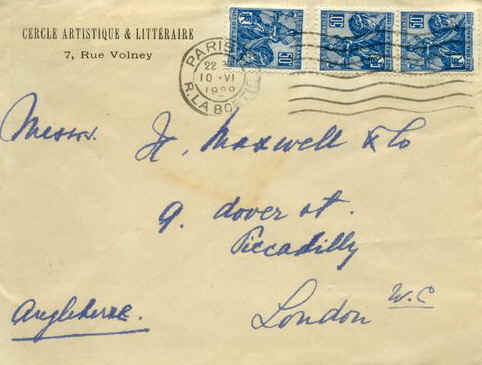 CERCLE ARTISTIQUE & LITTÉRAIRE
7, Rue Volney
PARIS
22
10 · VI
R. LA BO
50
50
50
Messrs. H. Maxwell & Co
9. Dover st.
Piccadilly
London W.C
Angleterre.